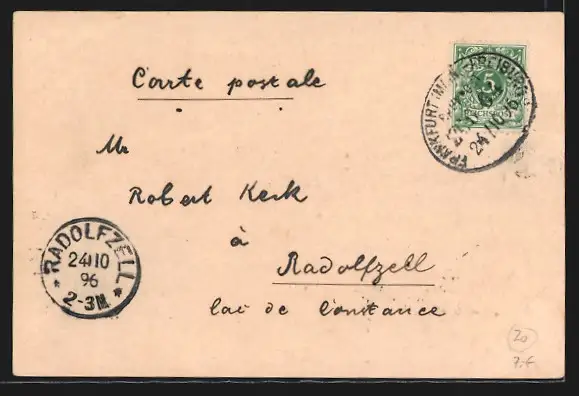 Carte postale
5
FRANKFURT (MAIN)-FREIBURG
24/10 96
Mr
Robert Keck
à
Radolfzell
lac de Constance
RADOLFZELL
24 10
96
2-3N
20
7.f